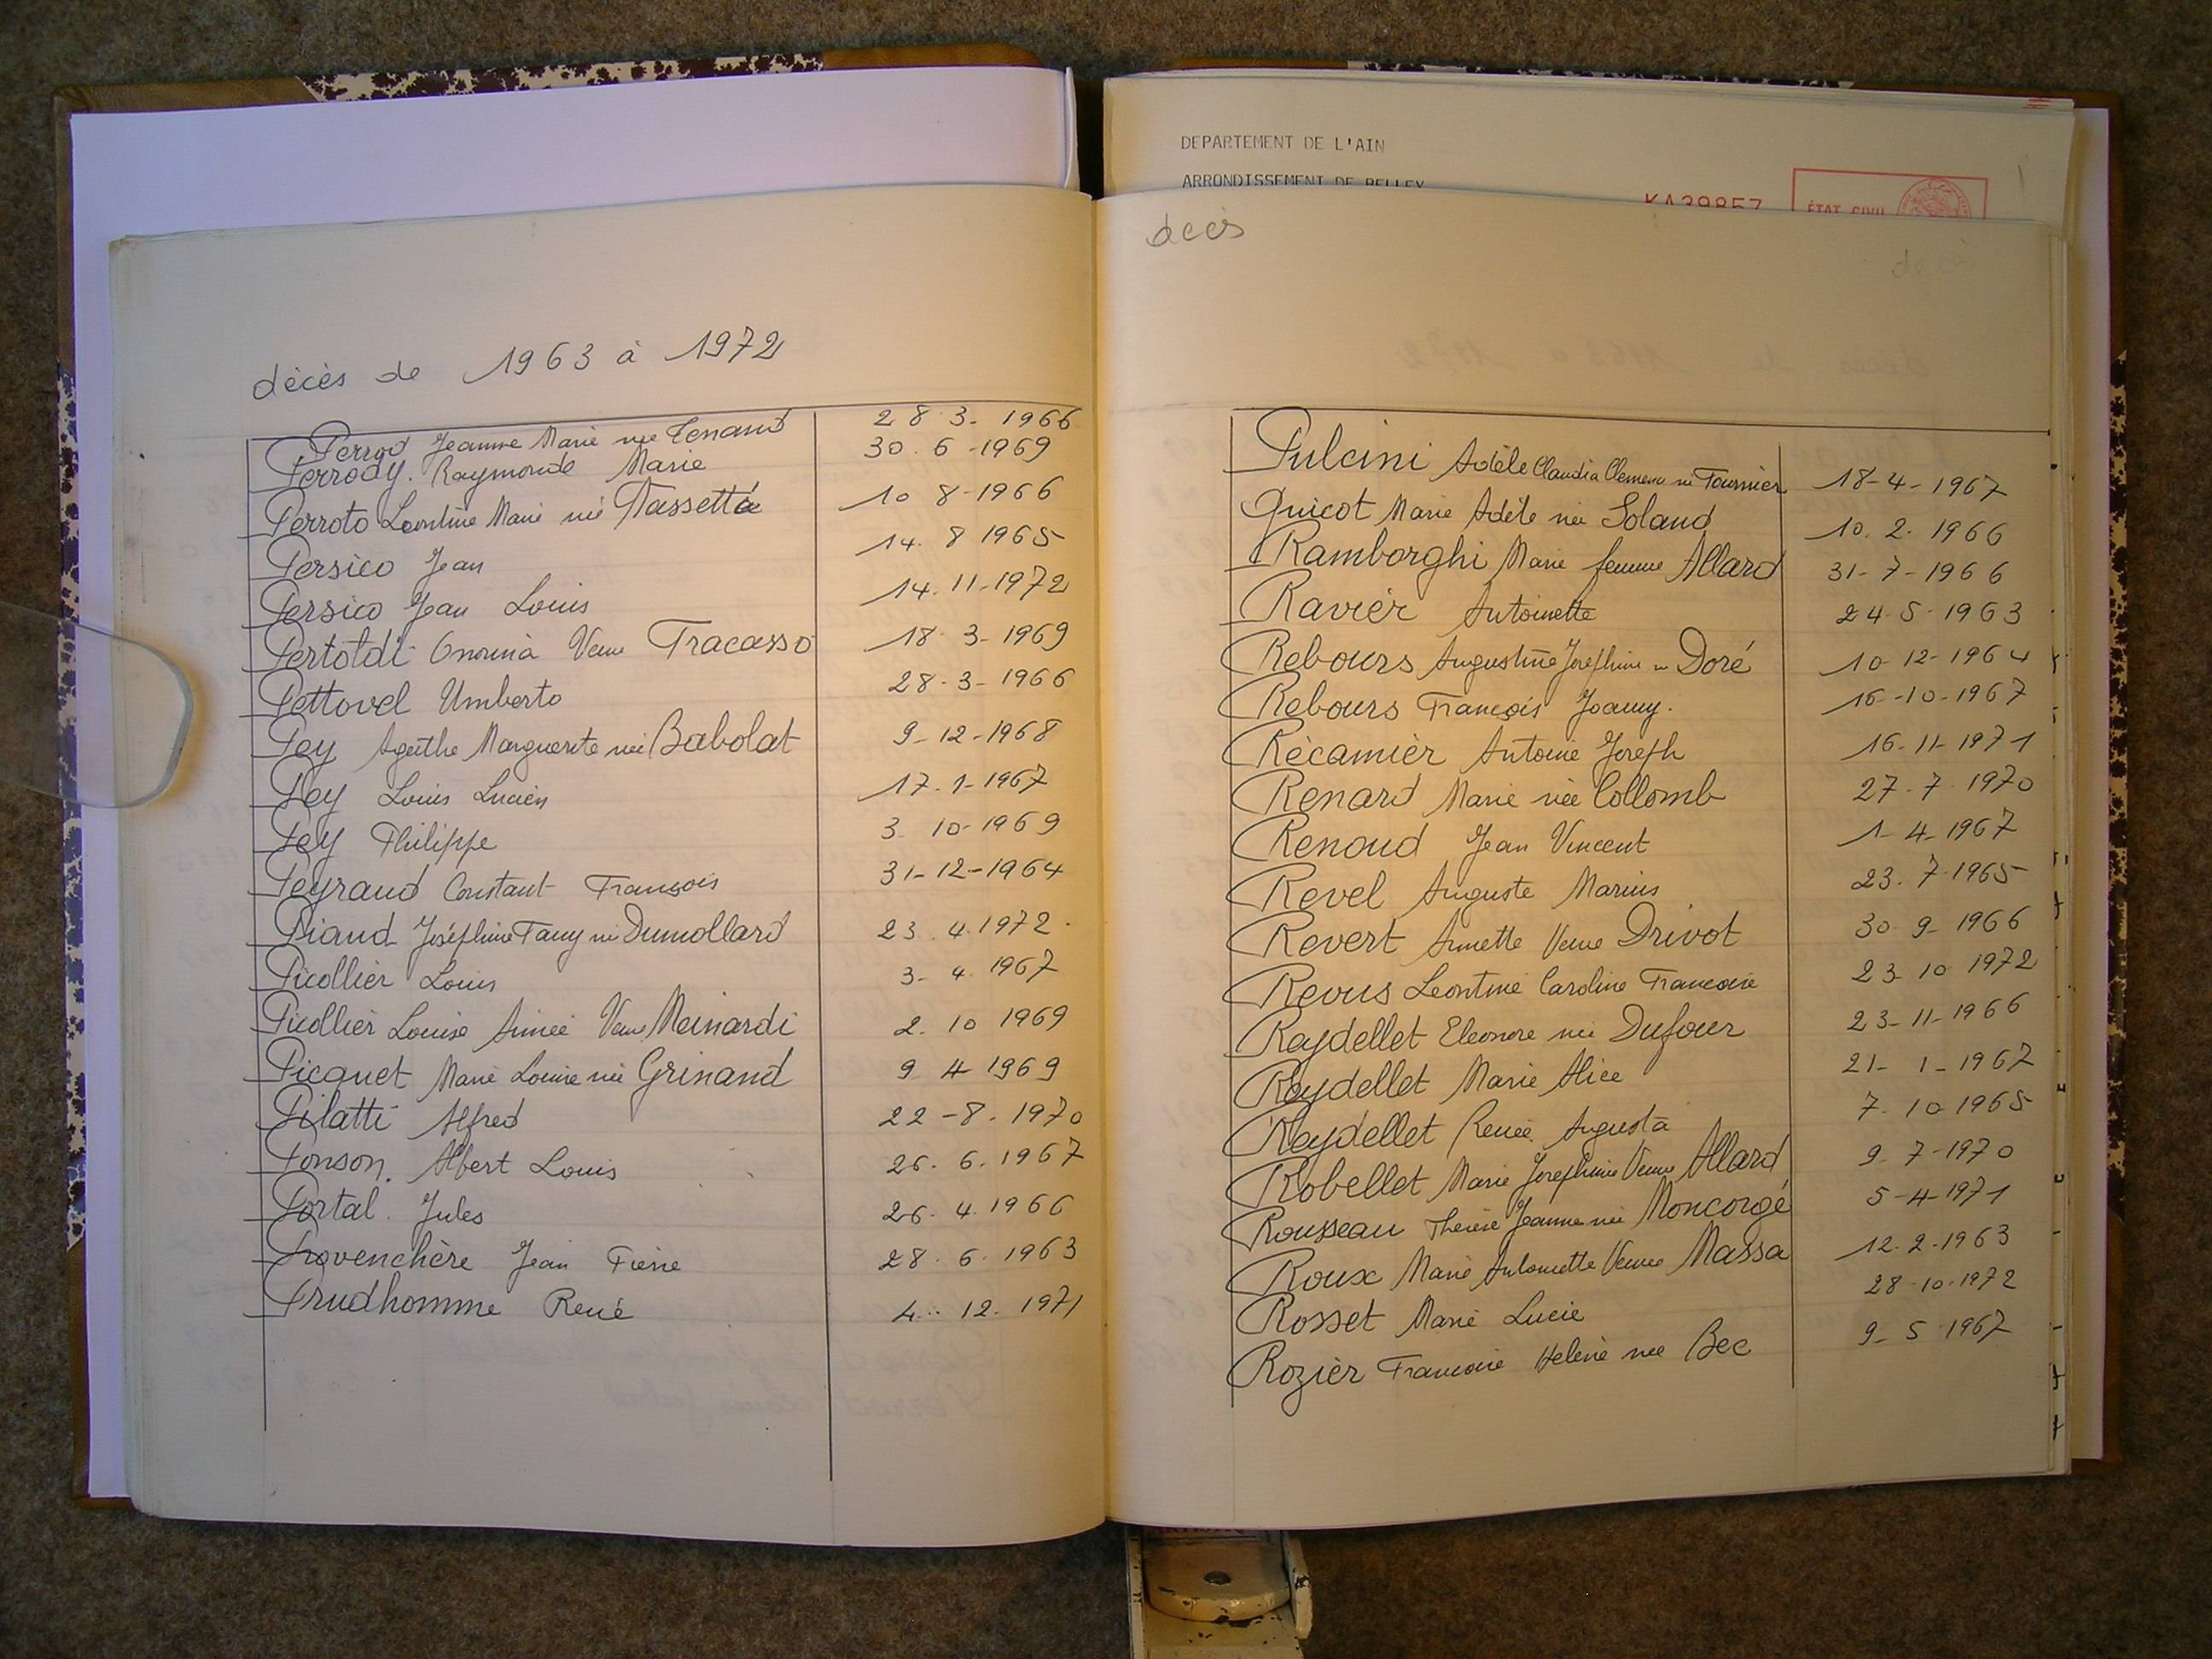 décès de 1963 à 1972
Perrod Jeanne Marie née Tenand 28.3-1966
Perrody. Raymonde Marie 30.6-1969
Perroto Leontine Marie née Passetta 10 8-1966
Persico Jean 14. 8 1965
Persico Jean Louis 14.11-1972
Pertoldi Veuve Tracasso 18. 3-1969
Pettovel Umberto 28-3-1966
Pey Agathe Marguerite née Babolat 9-12-1968
Pey Louis Lucien 17-1-1967
Pey Philippe 3 10-1969
Peyraud Constant François 31-12-1964
Piand Joséphine Fany née Dumollard 23.4.1972.
Picollier Louis 3-4 1967
Picollier Louise Aimée Veuve Meinardi 2. 10 1969
Picquet Marie Louise née Grinand 9 4 1969
Pilatti Alfred 22-8.1970
Ponson. Albert Louis 26. 6. 1967
Portal. Jules 26. 4. 1966
Provenchère Jean Pierre 28. 6. 1963
Prudhomme René 4. 12. 1971
DEPARTEMENT DE L'AIN
ARRONDISSEMENT DE BELLEY
KA39857
ÉTAT CIVIL
décès
Pulcini Adèle Claudia née Fournier 18-4-1967
Quicot Marie Adèle née Soland 10. 2. 1966
Ramborghi Marie femme Allard 31-7-1966
Ravier Antoinette 24-5-1963
Rebours Augustine Josephine née Doré 10-12-1964
Rebours François Joanny. 16-10-1967
Récamier Antoine Joseph 16-11-1971
Renard Marie née Collomb 27-7 1970
Renoud Jean Vincent 1-4-1967
Revel Auguste Marius 23.7.1965
Revert Annette Veuve Drivot 30 9-1966
Revus Leontine Caroline Francoise 23-10 1972
Reydellet Eleonore née Dufour 23-11-1966
Reydellet Marie Alice 21-1-1967
Reydellet Renée Augusta 7-10-1965
Robellet Marie Josephine Veuve Allard 9-7-1970
Rousseau Therese Jeanne née Moncorgé 5-4-1971
Roux Marie Antoinette Veuve Massa 12.2.1963
Rosset Marie Lucie 28-10-1972
Rozier Francoise Helène née Bec 9-5 1967